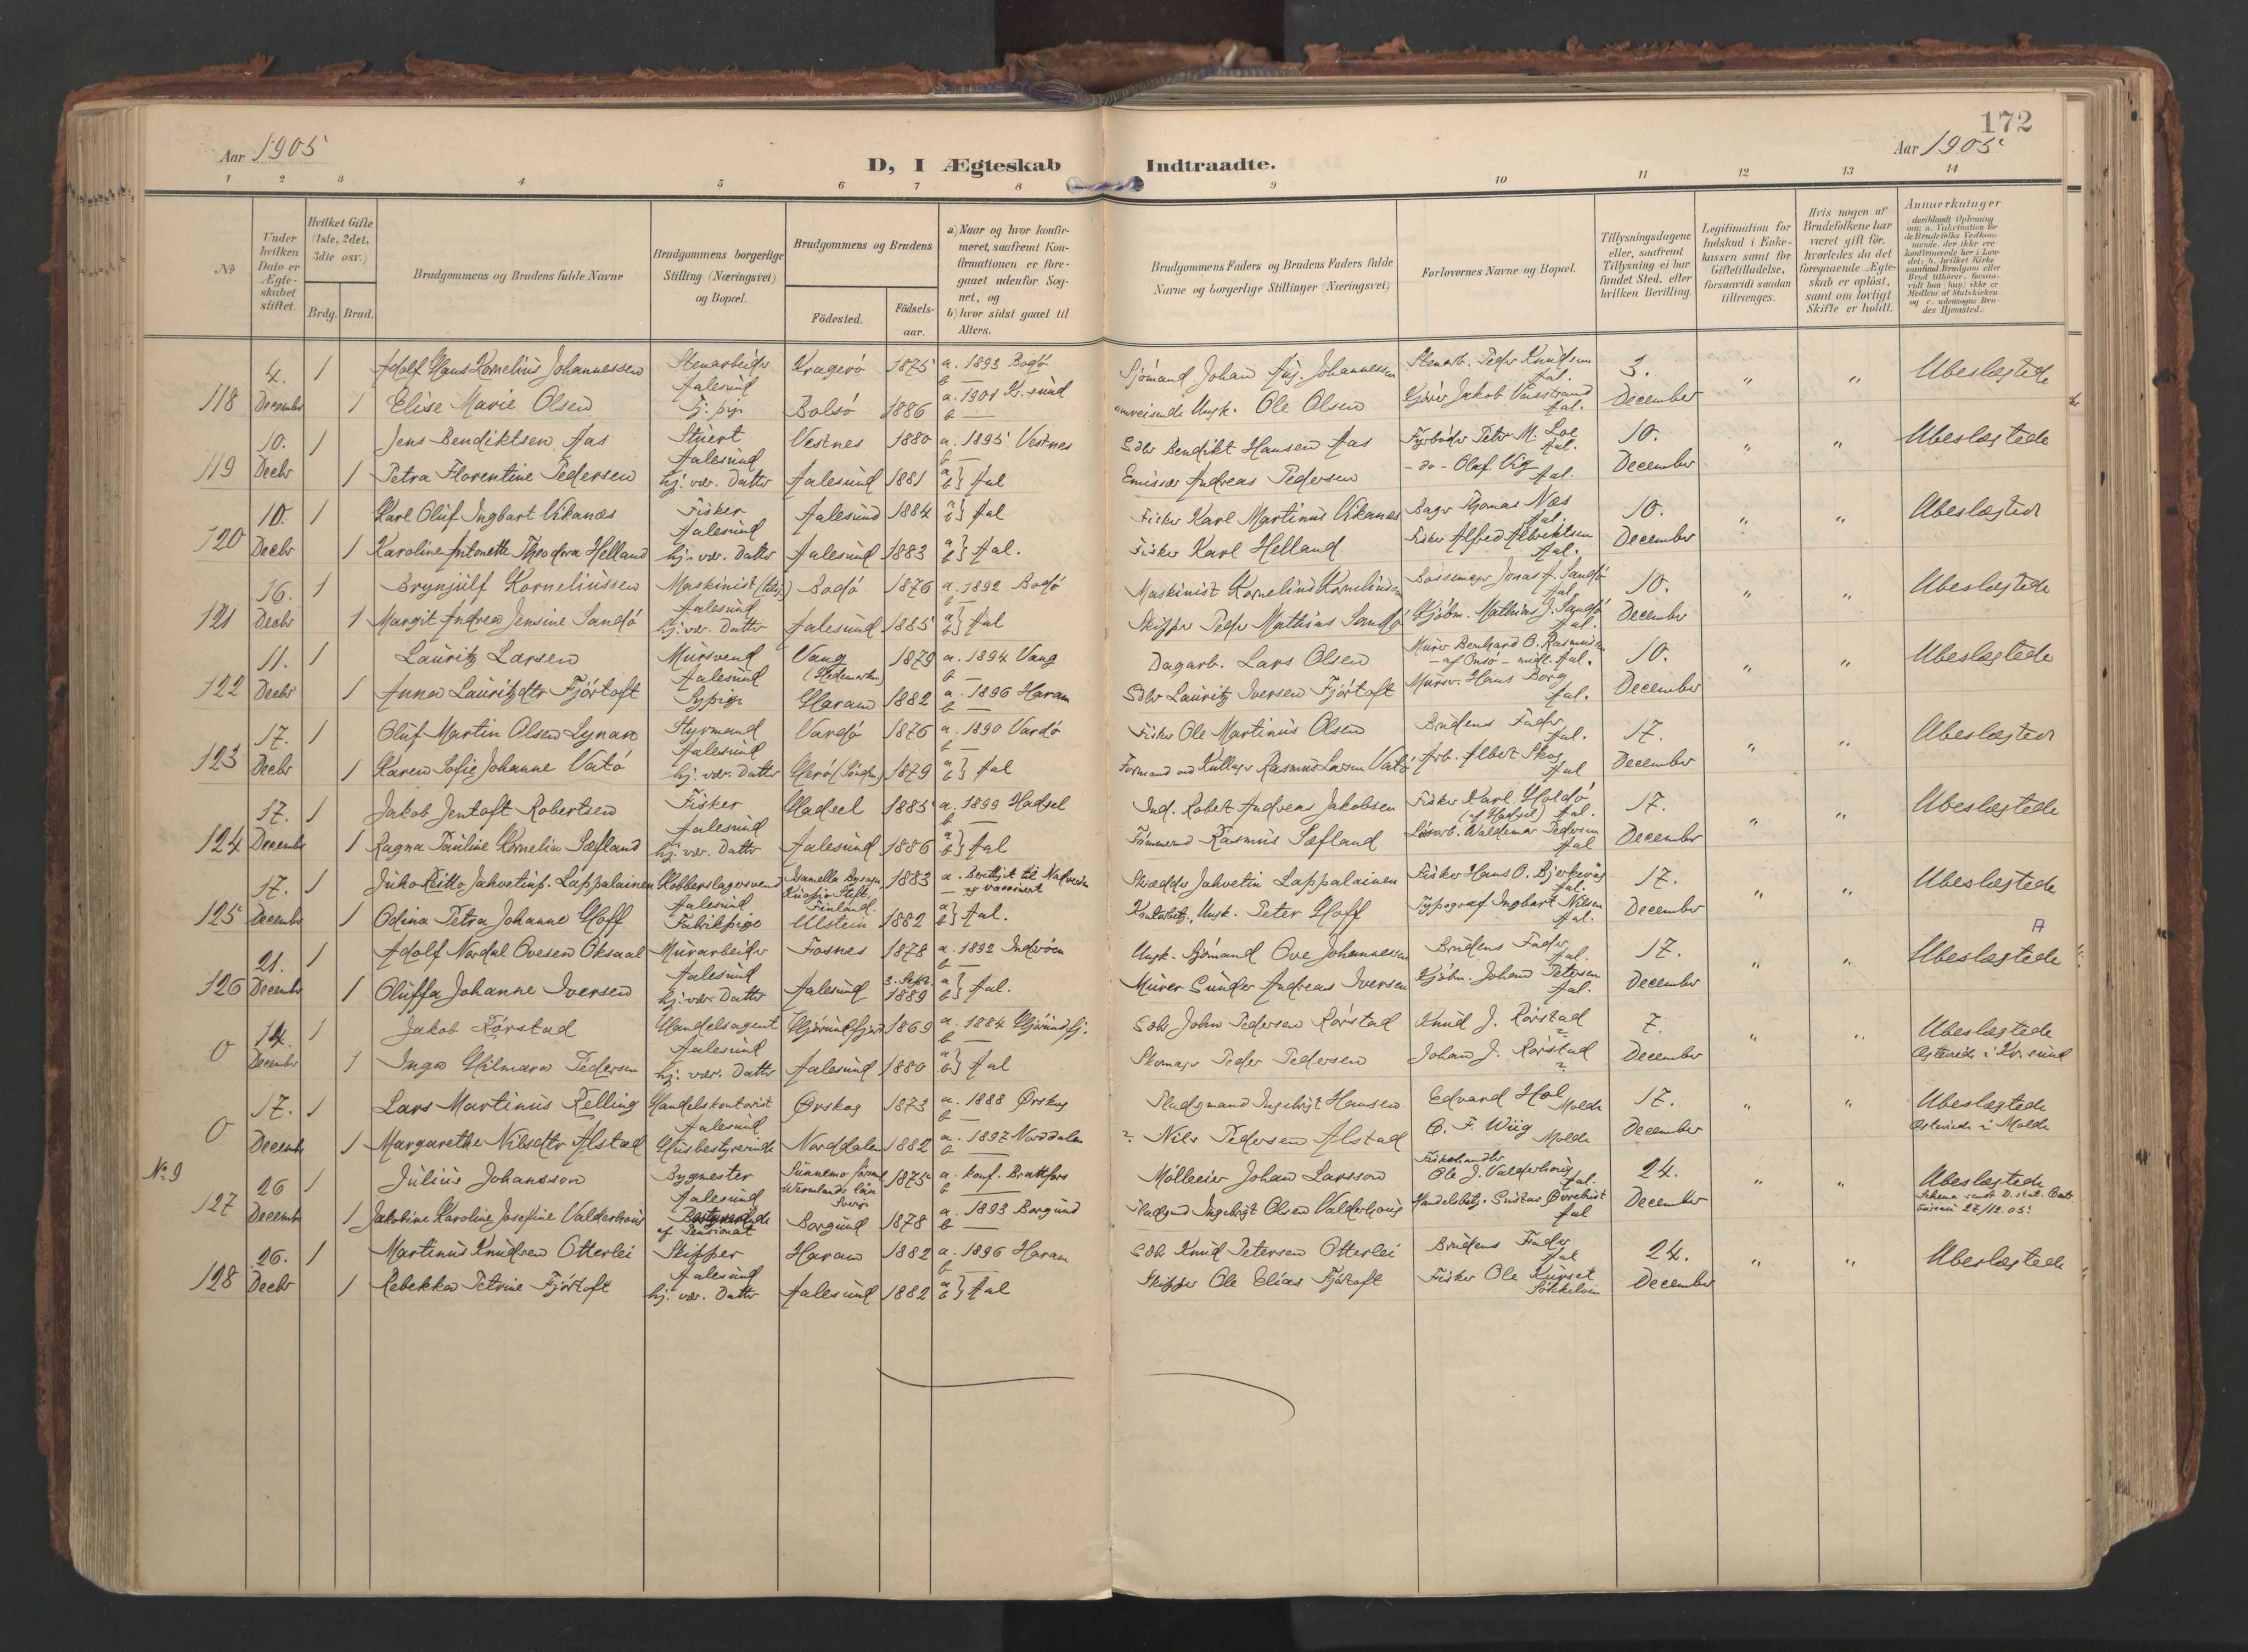 172
Aar 1905
Aar 1905
D, I Ægteskab Indtraadte.
1 2 3 4 5 6 7 8 9 10 11 12 13 14
No
Under hvilken Dato er Ægteskabet stiftet.
Hvilket Gifte (1ste, 2det, 3die osv.)
Brdg. Brud.
Brudgommens og Brudens fulde Navne
Brudgommens borgerlige Stilling (Næringsvei) og Bopæl.
Brudgommens og Brudens
Födested.
Födselsaar.
a) Naar og hvor konfirmeret, saafremt Konfirmationen er foregaaet udenfor Sognet, og
b) hvor sidst gaaet til Alters.
Brudgommens Faders og Brudens Faders fulde Navne og borgerlige Stillinger (Næringsvei)
Forlovernes Navne og Bopæl.
Tillysningsdagene eller, saafremt Tillysning ei har fundet Sted, efter hvilken Bevilling.
Legitimation for Indskud i Enkekassen samt for Giftetilladelse, forsaavidt saadan tiltrænges.
Hvis nogen af Brudefolkene har været gift för, hvorledes da det foregaaende Ægteskab er oplöst, samt om lovligt Skifte er holdt.
Anmærkninger
118 4. December 1 Adolf Hans Kornelius Johannessen Stenarbeider Aalesund Kragerö 1875 a. 1893 Bodö b — Sjömand Johan Aug. Johannessen Stenarb. Peder Knudsen Aal. 3. December " " Ubeslægtede
1 Elise Marie Olsen Tj. pige Bolsö 1886 a. 1901 Kr.sund b — omreisende Ungk. Ole Olsen Aal.
119 10. Decbr 1 Jens Bendiktsen Aas Stuert Aalesund Vestnes 1880 a. 1895 Vestnes b — Bendikt Hansen Aas Fyrböder Peter M. Loe Aal. 10. December " " Ubeslægtede
1 Petra Florentine Pedersen hj. vær. Datter Aalesund 1881 a b } Aal Emissær Andreas Pedersen - do - Olaf Vig Aal.
120 10. Decbr 1 Karl Oluf Ingbart Vikanæs Fisker Aalesund Aalesund 1884 a b } Aal Fisker Karl Martinus Vikanæs Bager Thomas Næs Aal. 10. December " " Ubeslægtede
1 Karoline Antonette Theodora Helland hj. vær. Datter Aalesund 1883 a b } Aal. Fisker Karl Helland Fisker Alfred Albrektsen Aal.
121 16. Decbr 1 Brynjulf Korneliussen Maskinist Aalesund Bodö 1876 a. 1892 Bodö b — Maskinist Kornelius Korneliussen Jonas A. Sandö Aal. 10. December " " Ubeslægtede
1 Margit Andrea Jensine Sandö hj. vær. Datter Aalesund 1885 a b } Aal Skipper Peder Mathias Sandö Kjöbm. Mathias J. Sandö Aal.
122 11. Decbr 1 Lauritz Larsen Mursvend Aalesund Vang (Hedemarken) 1879 a. 1894 Vang b — Dagarb. Lars Olsen Murer Bernhard O. Rasmussen - af Onsö - midl. Aal. 10. December " " Ubeslægtede
1 Anna Lauritzdtr Fjörtoft Sypige Haram 1882 a. 1896 Haram b — Lauritz Iversen Fjörtoft Mursv. Hans Borg Aal.
123 17. Decbr 1 Oluf Martin Olsen Lynum Styrmand Aalesund Vardö 1876 a. 1890 Vardö b — Fisker Ole Martinus Olsen Brudens Fader Aal. 17. December " " Ubeslægtede
1 Karen Sofie Johanne Vatö hj. vær. Datter Herö 1879 a b } Aal Formand ved Kullager Rasmus Larsen Vatö Arb. Albert Skog Aal
124 17. December 1 Jakob Jentoft Robertsen Fisker Aalesund Hadsel 1885 a. 1899 Hadsel b — Ind. Robert Andreas Jakobsen Fisker Karl Holdö (af Hadsel) Aal. 17. December " " Ubeslægtede
1 Ragna Pauline Kornelia Sæfland hj. vær. Datter Aalesund 1886 a b } Aal Tömmermand Rasmus Sæfland Lösarb. Waldemar Pedersen Aal
125 17. December 1 Juho Heikki Jahvetinp. Lappalainen Kobberslagersvend Aalesund Kuopio Stift, Finland. 1883 a. Berettiget til Nadveren og vaccinert Skrædder Jahvetin Lappalainen Fisker Hans O. Bjerkevaag Aal. 17. December " " Ubeslægtede
1 Odina Petra Johanne Hoff Fabrikpige Ulstein 1882 a b } Aal. Ungk. Peter Hoff Typograf Ingbart Nilsen Aal.
126 21. December 1 Adolf Nordal Ovesen Oksaal Murarbeider Aalesund Fosnes 1878 a. 1892 Inderöen b — Ungk. Sjömand Ove Johannesen Brudens Fader Aal. 17. December " " Ubeslægtede A
1 Oluffa Johanne Iversen hj. vær. Datter Aalesund 3. Septr. 1889 a b } Aal. Murer Sunder Andreas Iversen Kjöbm. Johan Petersen Aal.
0 14. December 1 Jakob Rörstad Handelsagent Aalesund Hjörundfjord 1869 a. 1884 Hjörundfj. b — John Pedersen Rörstad Knud J. Rörstad ? 7. December " " Ubeslægtede
1 Inga Hilmara Pedersen hj. vær. Datter Aalesund 1880 a b } Aal Skomager Peder Pedersen Johan J. Rörstad ? Ægteviede i Kr.sund
0 17. December 1 Lars Martinus Relling Handelskontorist Aalesund Ørskog 1873 a. 1888 Ørskog b Pladsmand Ingebrigt Hansen Edvard Hol Molde 17. December " " Ubeslægtede
1 Margarethe Nilsdtr Alstad Husbestyrerinde Norddalen 1882 a. 1897 Norddalen b — ? Nils Pedersen Alstad O. F. Wiig Molde Ægteviede i Molde
No 9
127 26 December 1 Julius Johansson Bygmester Aalesund Sunnemo Wermlands län Sverige 1875 a. konf. Brattfors b — Mölleeier Johan Larsson Fiskehandler Ole J. Valderhoug Aal. 24. December " " Ubeslægtede
1 Jakobine Karoline Josefine Valderhoug Bestyrerinde af Pensionat Borgund 1878 a. 1893 Borgund b — Ingebrigt Olsen Valderhoug Aal 27/12.05.
128 26. Decbr 1 Martinus Knudsen Otterlei Skipper Aalesund Haram 1882 a. 1896 Haram b — Knud Petersen Otterlei Brudens Fader Aal 24. December " " Ubeslægtede
1 Rebekka Petrine Fjörtoft hj. vær. Datter Aalesund 1882 a b } Aal Skipper Ole Elias Fjörtoft Fisker Ole Kurset